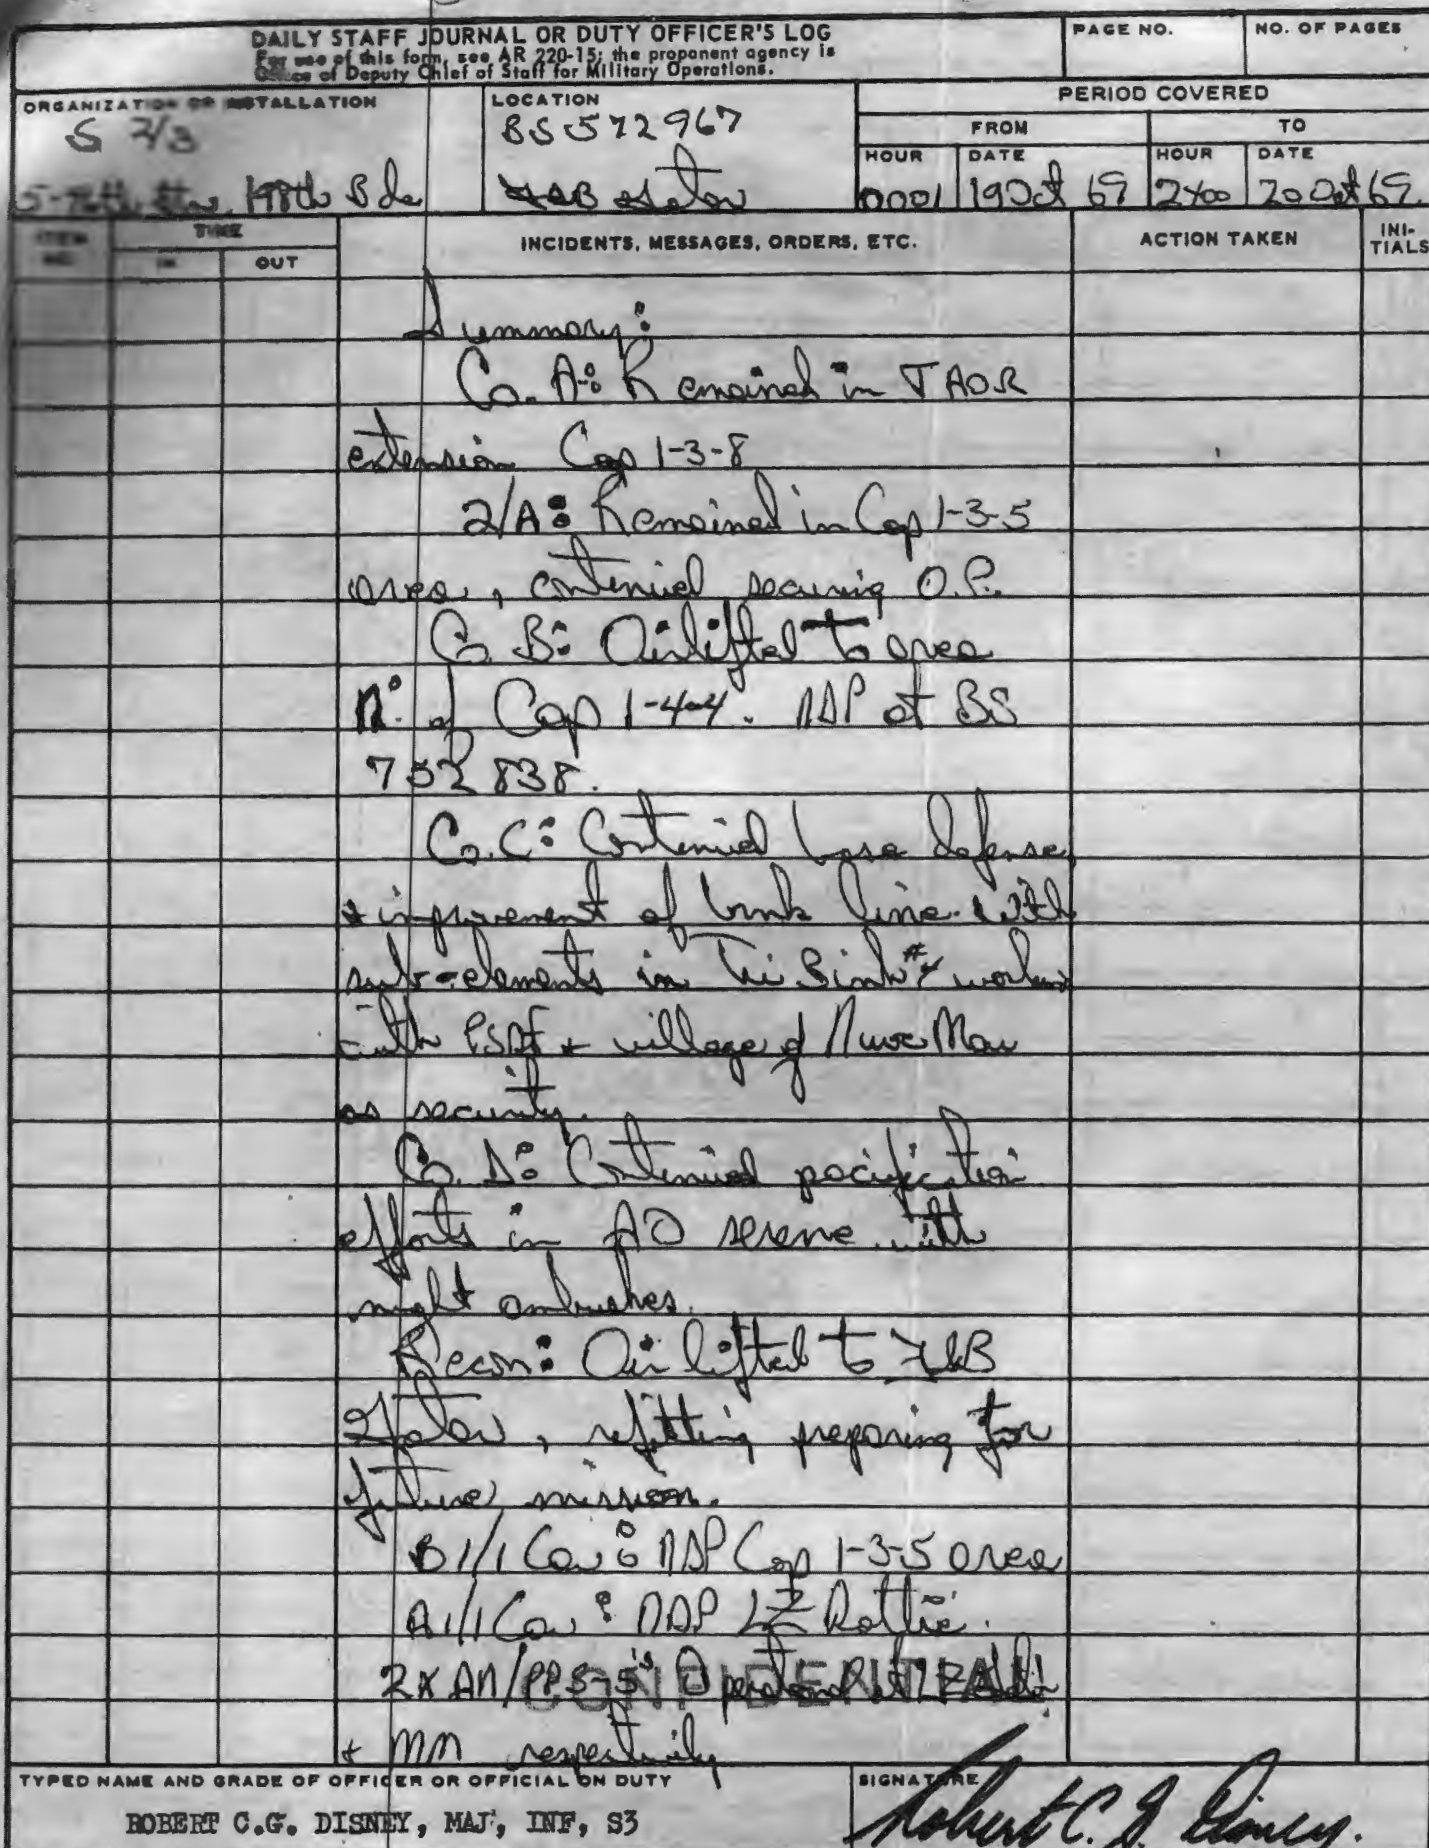 DAILY STAFF JOURNAL OR DUTY OFFICER'S LOG
For use of this form, see AR 220-15; the proponent agency is
Office of Deputy Chief of Staff for Military Operations.
PAGE NO.
NO. OF PAGES
ORGANIZATION OR INSTALLATION
S 2/3
198th Bde
LOCATION
BS 572967
PERIOD COVERED
FROM
TO
HOUR
DATE
HOUR
DATE
0001
19 Oct 69
2400
20 Oct 69
ITEM NO.
TIME
IN
OUT
INCIDENTS, MESSAGES, ORDERS, ETC.
ACTION TAKEN
INI-
TIALS
Summary:
Co. A: Remained in TAOR
extension Cap 1-3-8
2/A: Remained in Cap 1-3-5
area, contenied securing O.P.
Co. B: Airlifted to area
N. of Cap 1-4-4. NDP at BS
752838.
Co. C: Contenied base defense
+ improvement of bunk line. with
sub-elements in Tri Binh #4
with PSDF + village of
as security.
Co. D: Contenied pacification
efforts in AO serene with
night ambushes.
Recon: Air lifted to
refitting preparing for
future mission.
B 1/1 Cav: NDP Cap 1-3-5 area
A 1/1 Cav: NDP LZ
2x AN/PPS-5's Operational at LZ
+ MM respectively
CONFIDENTIAL
TYPED NAME AND GRADE OF OFFICER OR OFFICIAL ON DUTY
ROBERT C.G. DISNEY, MAJ, INF, S3
SIGNATURE
Robert C. G. Disney